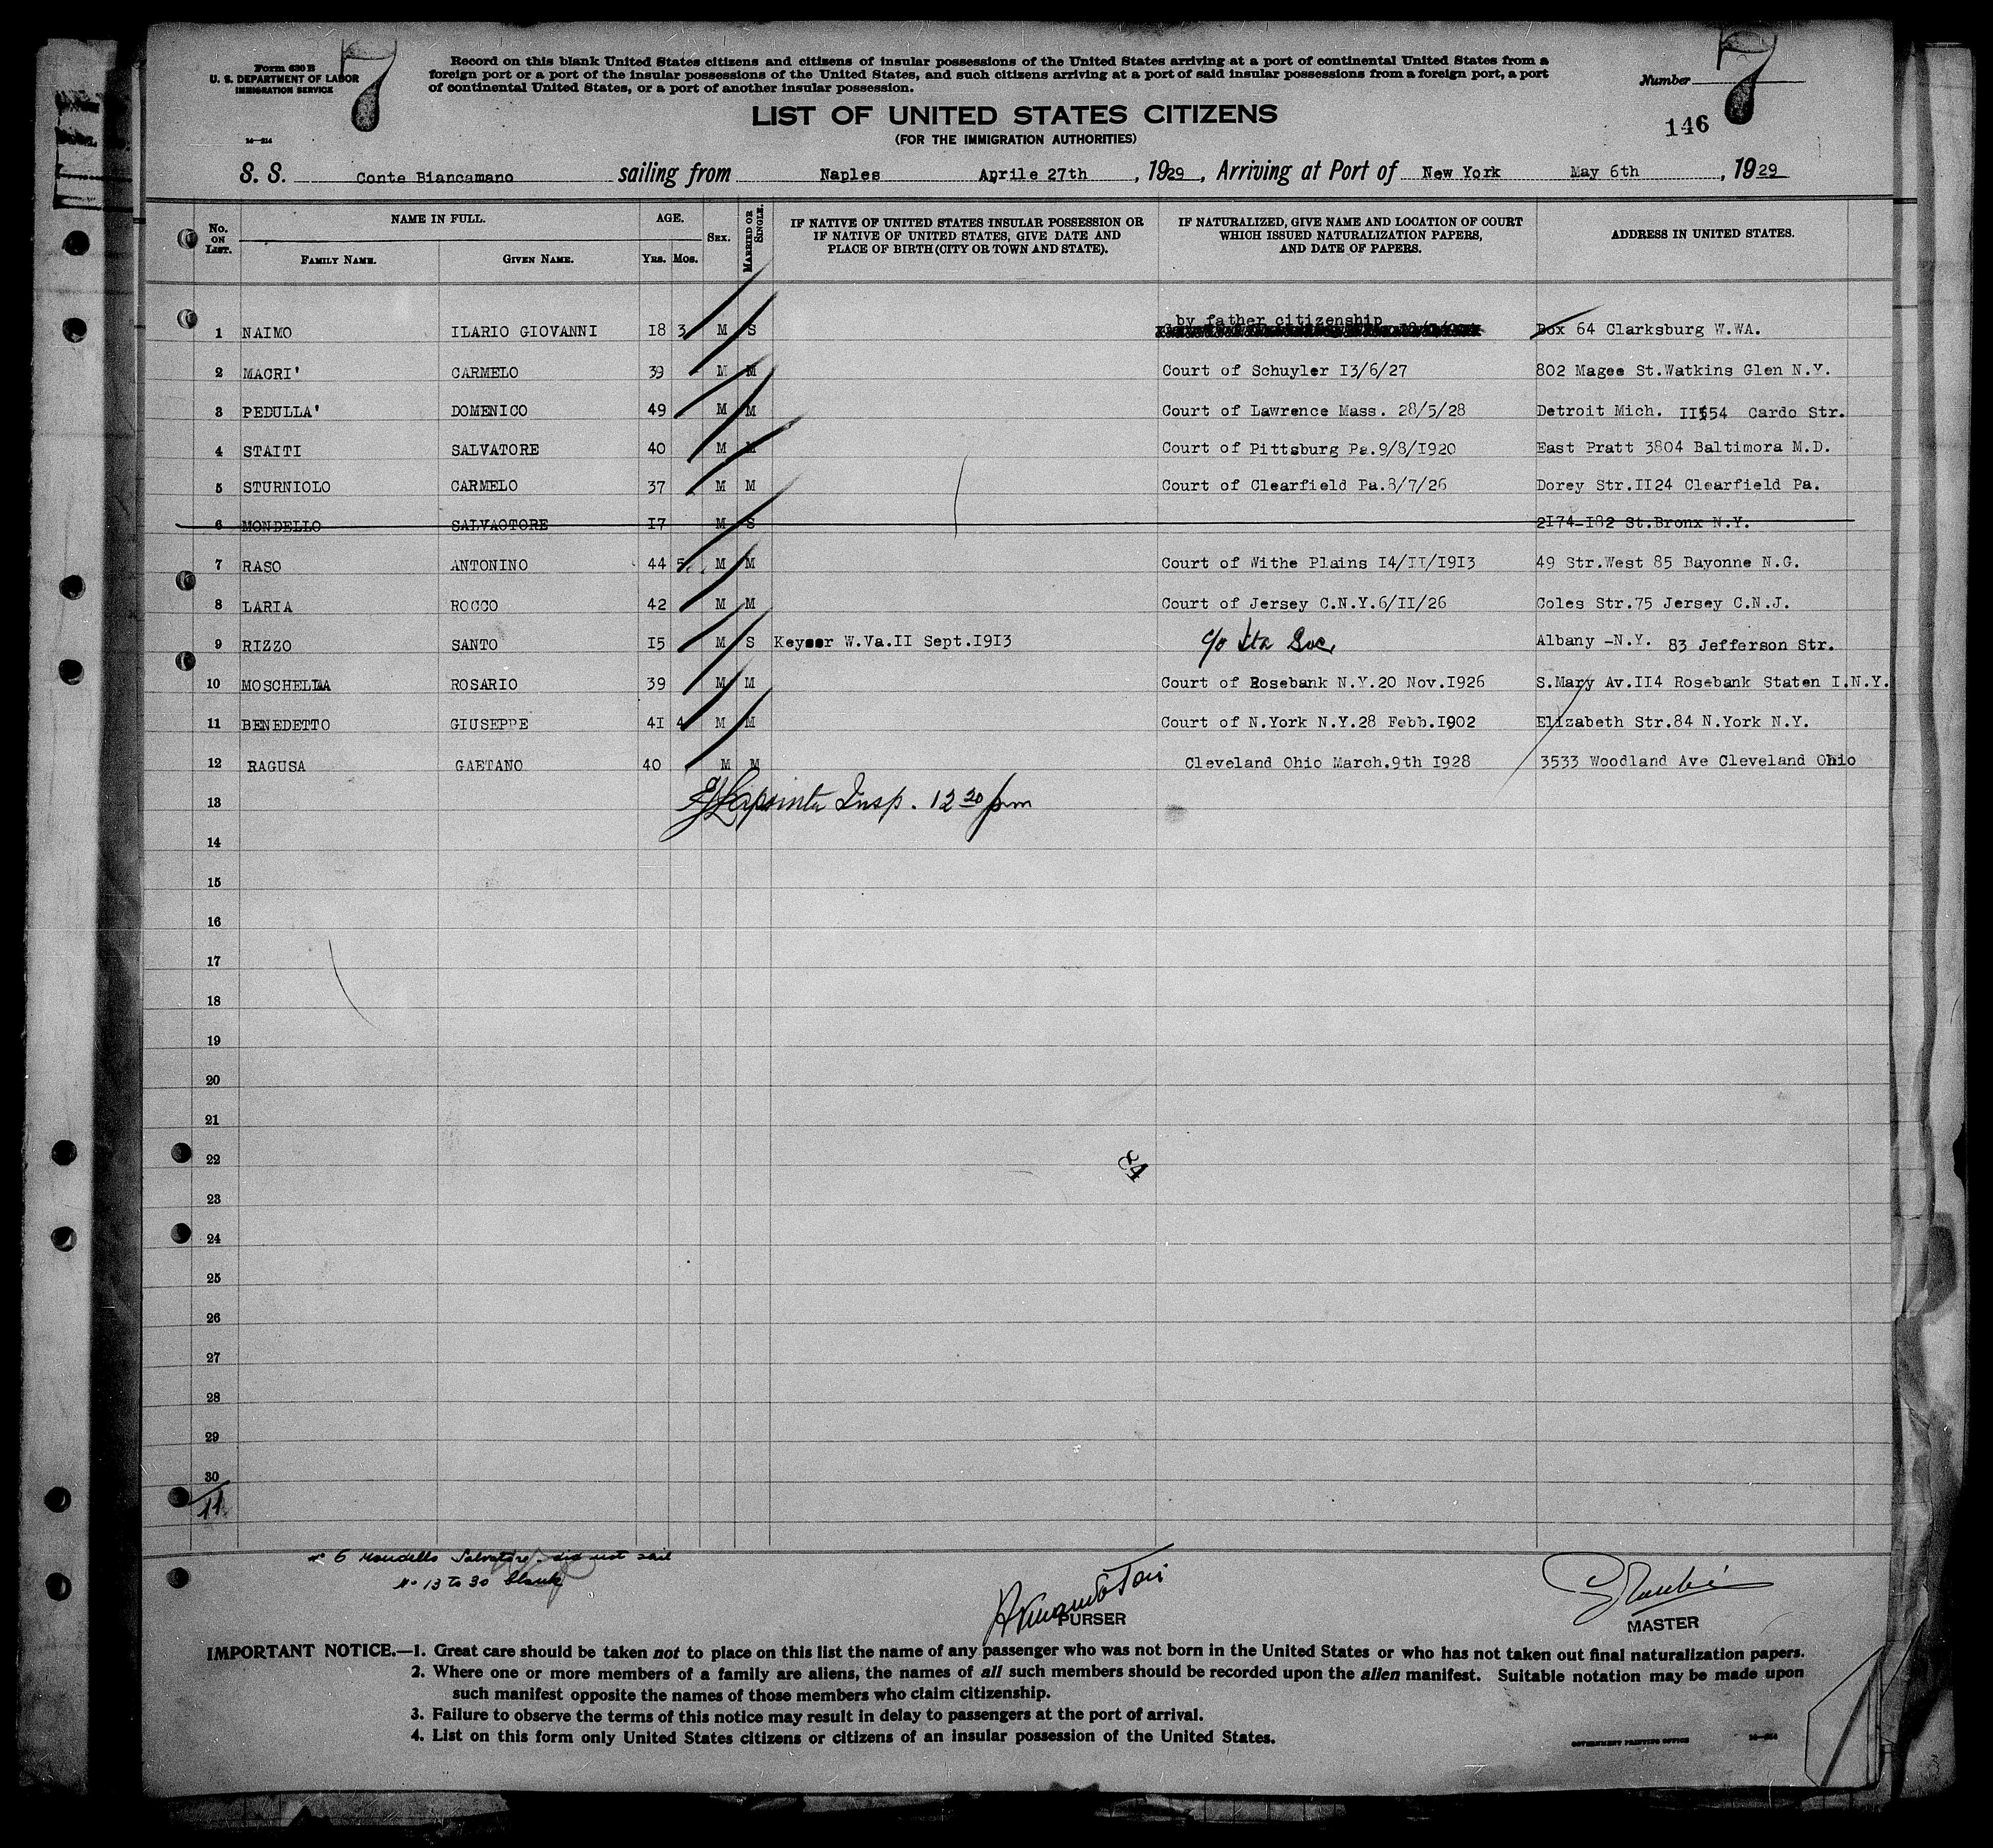 Form 630 B
U. S. DEPARTMENT OF LABOR
IMMIGRATION SERVICE
7
Record on this blank United States citizens and citizens of insular possessions of the United States arriving at a port of continental United States from a
foreign port or a port of the insular possessions of the United States, and such citizens arriving at a port of said insular possessions from a foreign port, a port
of continental United States, or a port of another insular possession.
Number 7
LIST OF UNITED STATES CITIZENS
146
(FOR THE IMMIGRATION AUTHORITIES)
14—214
S. S. Conte Biancamano sailing from Naples Aprile 27th, 1929, Arriving at Port of New York May 6th, 1929
No. ON LIST. NAME IN FULL. FAMILY NAME. GIVEN NAME. AGE. YRS. MOS. SEX. MARRIED OR SINGLE. IF NATIVE OF UNITED STATES INSULAR POSSESSION OR IF NATIVE OF UNITED STATES, GIVE DATE AND PLACE OF BIRTH (CITY OR TOWN AND STATE). IF NATURALIZED, GIVE NAME AND LOCATION OF COURT WHICH ISSUED NATURALIZATION PAPERS, AND DATE OF PAPERS. ADDRESS IN UNITED STATES.
by father citizenship
1 NAIMO ILARIO GIOVANNI 18 3 M S Box 64 Clarksburg W.WA.
2 MACRI' CARMELO 39 M M Court of Schuyler I3/6/27 802 Magee St.Watkins Glen N.Y.
3 PEDULLA' DOMENICO 49 M M Court of Lawrence Mass. 28/5/28 Detroit Mich. Cardo Str.
4 STAITI SALVATORE 40 M M Court of Pittsburg Pa.9/8/I920 East Pratt 3804 Baltimora M.D.
5 STURNIOLO CARMELO 37 M M Court of Clearfield Pa.8/7/26 Dorey Str.II24 Clearfield Pa.
6 MONDELLO SALVAOTORE I7 M S 2I74-I82 St.Bronx N.Y.
7 RASO ANTONINO 44 5 M M Court of Withe Plains I4/II/I9I3 49 Str.West 85 Bayonne N.G.
8 LARIA ROCCO 42 M M Court of Jersey C.N.Y.6/II/26 Coles Str.75 Jersey C.N.J.
9 RIZZO SANTO I5 M S Keyser W.Va.II Sept.I9I3 c/o Albany -N.Y. 83 Jefferson Str.
10 MOSCHELLA ROSARIO 39 M M Court of Rosebank N.Y.20 Nov.I926 S.Mary Av.II4 Rosebank Staten I.N.Y.
11 BENEDETTO GIUSEPPE 4I 4 M M Court of N.York N.Y.28 Febb.I902 Elizabeth Str.84 N.York N.Y.
12 RAGUSA GAETANO 40 M M Cleveland Ohio March.9th I928 3533 Woodland Ave Cleveland Ohio
13 Insp. 12 20 pm
14
15
16
17
18
19
20
21
22
23
24
25
26
27
28
29
30
11
34
no 6 Mondello Salvatore did not sail
No 13 to 30 blank
PURSER
MASTER
IMPORTANT NOTICE.—1. Great care should be taken not to place on this list the name of any passenger who was not born in the United States or who has not taken out final naturalization papers.
2. Where one or more members of a family are aliens, the names of all such members should be recorded upon the alien manifest. Suitable notation may be made upon
such manifest opposite the names of those members who claim citizenship.
3. Failure to observe the terms of this notice may result in delay to passengers at the port of arrival.
4. List on this form only United States citizens or citizens of an insular possession of the United States.
GOVERNMENT PRINTING OFFICE 14—214